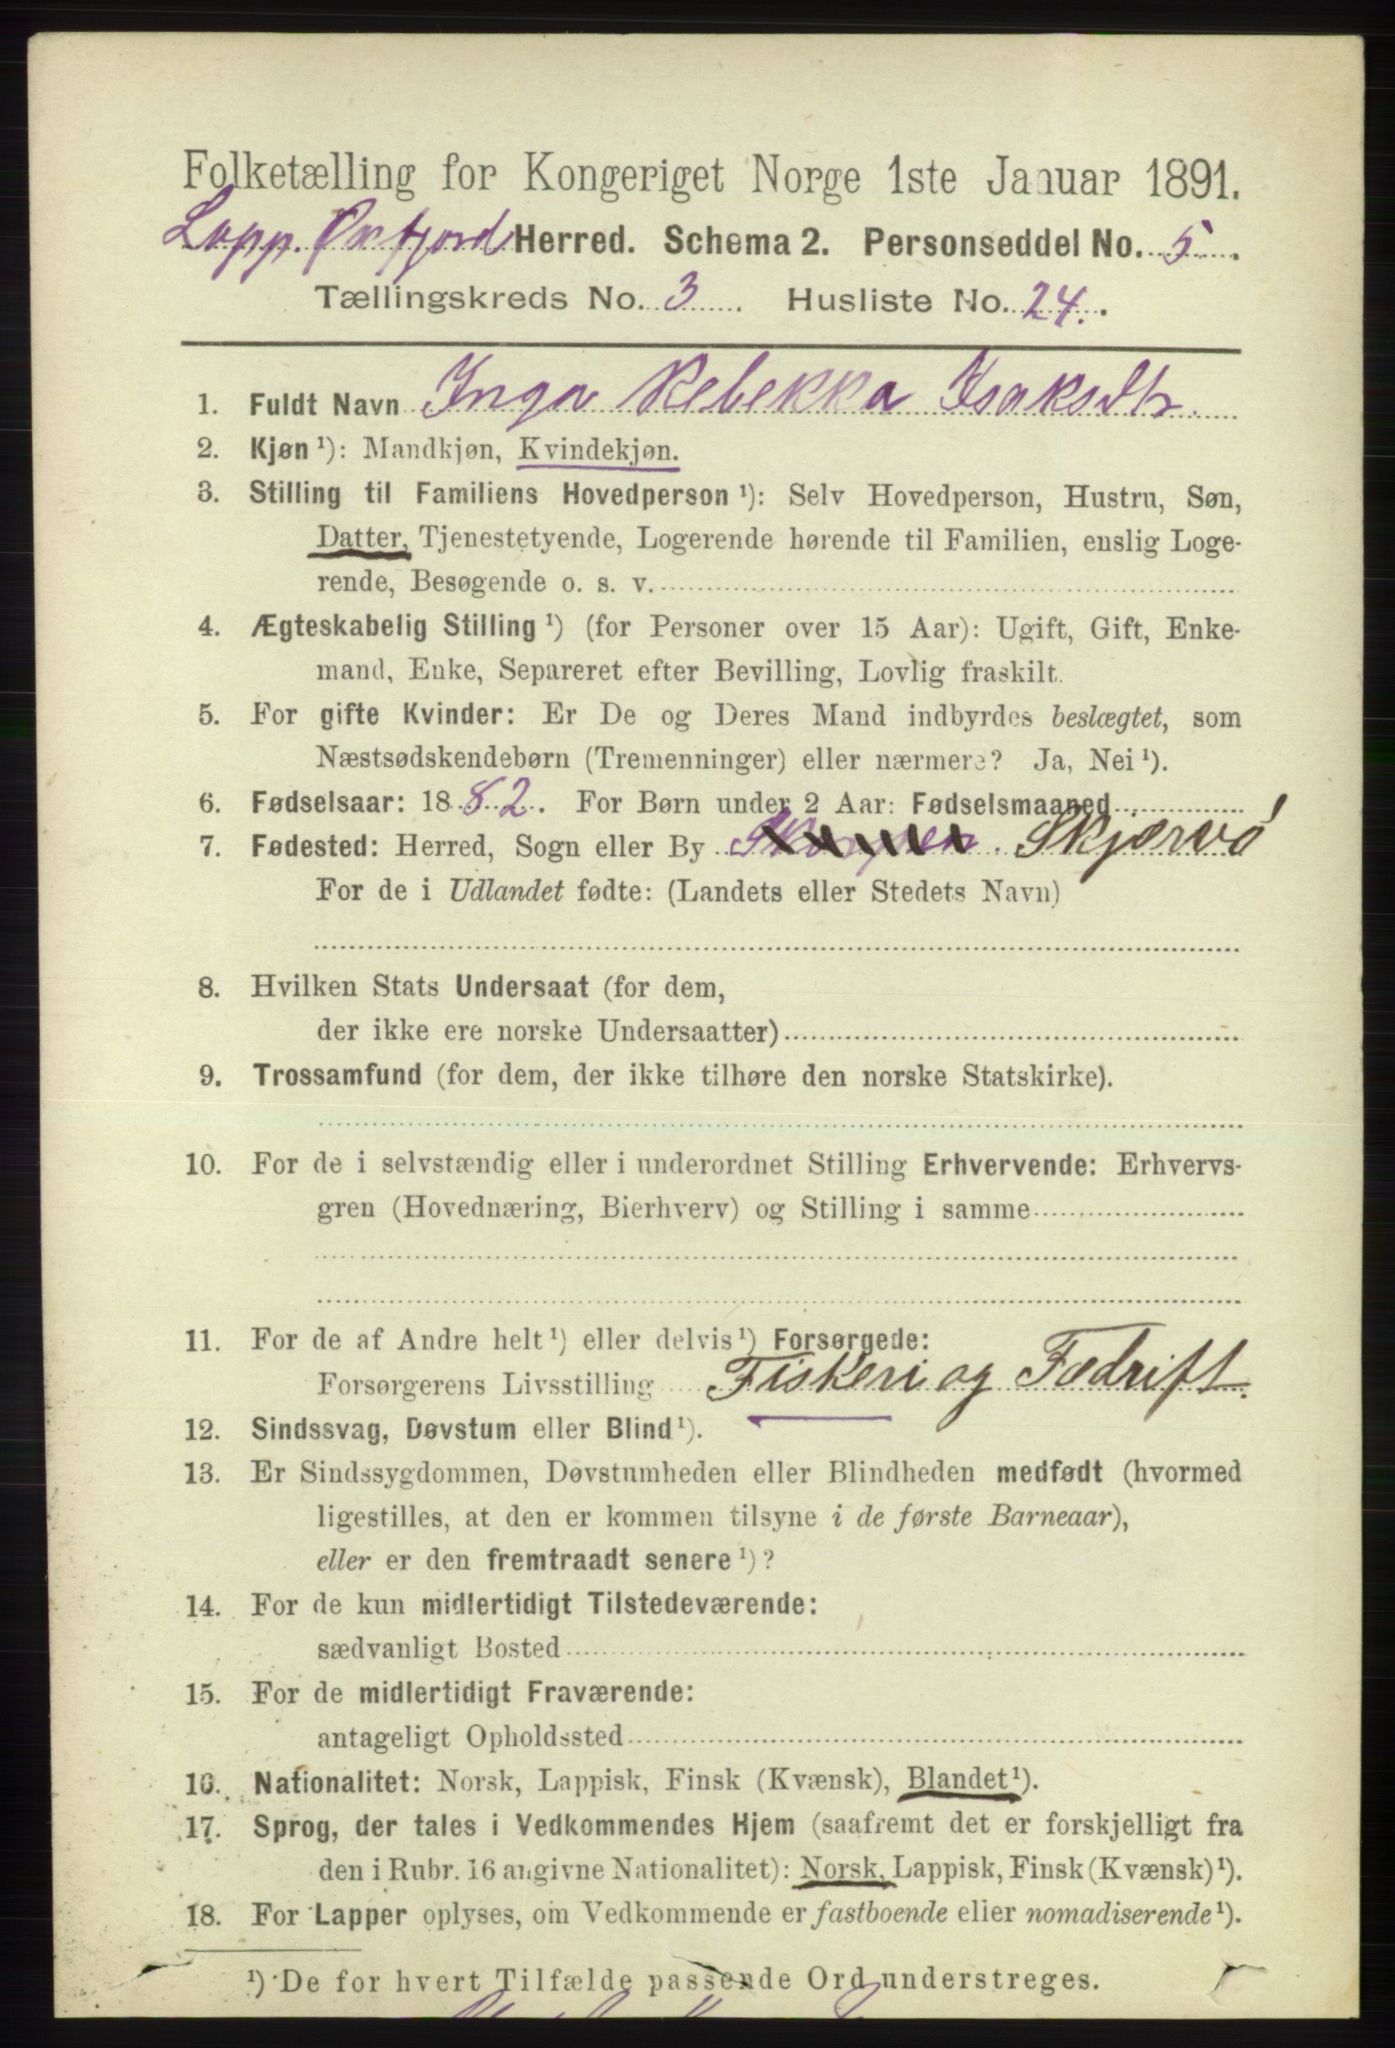 Folketælling for Kongeriget Norge 1ste Januar 1891.
Lopp. Øxfjord Herred. Schema 2. Personseddel No. 5.
Tællingskreds No. 3. Husliste No. 24.
1. Fuldt Navn Inga Rebekka Isaksdtr.
2. Kjøn ¹): Mandkjøn, Kvindekjøn.
3. Stilling til Familiens Hovedperson ¹): Selv Hovedperson, Hustru, Søn,
Datter, Tjenestetyende, Logerende hørende til Familien, enslig Loge-
rende, Besøgende o. s. v.
4. Ægteskabelig Stilling ¹) (for Personer over 15 Aar): Ugift, Gift, Enke-
mand, Enke, Separeret efter Bevilling, Lovlig fraskilt.
5. For gifte Kvinder: Er De og Deres Mand indbyrdes beslægtet, som
Næstsødskendebørn (Tremenninger) eller nærmere? Ja, Nei ¹).
6. Fødselsaar: 1882. For Børn under 2 Aar: Fødselsmaaned
7. Fødested: Herred, Sogn eller By Skjærvø
For de i Udlandet fødte: (Landets eller Stedets Navn)
8. Hvilken Stats Undersaat (for dem,
der ikke ere norske Undersaatter)
9. Trossamfund (for dem, der ikke tilhøre den norske Statskirke).
10. For de i selvstændig eller i underordnet Stilling Erhvervende: Erhvervs-
gren (Hovednæring, Bierhverv) og Stilling i samme
11. For de af Andre helt ¹) eller delvis ¹) Forsørgede:
Forsørgerens Livsstilling Fiskeri og Fædrift.
12. Sindssvag, Døvstum eller Blind ¹).
13. Er Sindssygdommen, Døvstumheden eller Blindheden medfødt (hvormed
ligestilles, at den er kommen tilsyne i de første Barneaar),
eller er den fremtraadt senere ¹)?
14. For de kun midlertidigt Tilstedeværende:
sædvanligt Bosted
15. For de midlertidigt Fraværende:
antageligt Opholdssted
16. Nationalitet: Norsk, Lappisk, Finsk (Kvænsk), Blandet ¹).
17. Sprog, der tales i Vedkommendes Hjem (saafremt det er forskjelligt fra
den i Rubr. 16 angivne Nationalitet): Norsk, Lappisk, Finsk (Kvænsk) ¹).
18. For Lapper oplyses, om Vedkommende er fastboende eller nomadiserende ¹).
¹) De for hvert Tilfælde passende Ord understreges.